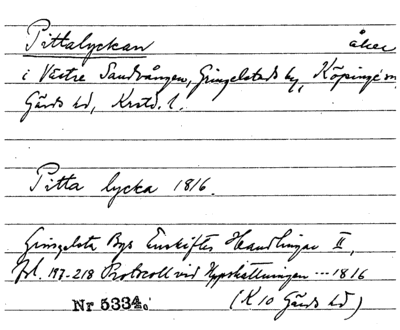 Pittalyckan åker
i Västre Sandvången, Gringelstads by, Köpinge sn,
Gärds hd, Krstd. l.
Pitta lycka 1816.
Gringelsta Bys Enskiftes Handlingar II,
fol. 197-218 Protocoll vid Uppskattningen --- 1816
Nr 5334 (K 10 Gärds hd)